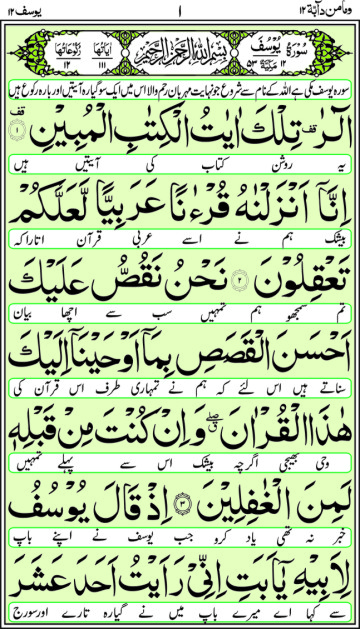 یوسف ۱۲ ۱ وما من دآبة ۱۲
سُوْرَةُ يُوْسُفَ ۱۲ ۵۳ بِسْمِ اللهِ الرَّحْمٰنِ الرَّحِيْمِ اٰيَاتُهَا ۱۱۱ رُكُوْعَاتُهَا ۱۲
سورہ یوسف مکی ہے اللہ کے نام سے شروع جو نہایت مہربان رحم والا اس میں ایک سو گیارہ آیتیں اور بارہ رکوع ہیں
الٓرٰ تِلْكَ اٰيٰتُ الْكِتٰبِ الْمُبِيْنِ ۱
یہ روشن کتاب کی آیتیں ہیں
اِنَّاۤ اَنْزَلْنٰهُ قُرْءٰنًا عَرَبِيًّا لَّعَلَّكُمْ
بیشک ہم نے اسے عربی قرآن اتارا کہ
تَعْقِلُوْنَ ۲ نَحْنُ نَقُصُّ عَلَيْكَ
تم سمجھو ہم تمہیں سب سے اچھا بیان
اَحْسَنَ الْقَصَصِ بِمَاۤ اَوْحَيْنَاۤ اِلَيْكَ
سناتے ہیں اس لئے کہ ہم نے تمہاری طرف اس قرآن کی
هٰذَا الْقُرْاٰنَ وَاِنْ كُنْتَ مِنْ قَبْلِهٖ
وحی بھیجی اگرچہ بیشک اس سے پہلے تمہیں
لَمِنَ الْغٰفِلِيْنَ ۳ اِذْ قَالَ يُوْسُفُ
خبر نہ تھی یاد کرو جب یوسف نے اپنے باپ
لِاَبِيْهِ يٰۤاَبَتِ اِنِّيْ رَاَيْتُ اَحَدَ عَشَرَ
سے کہا اے میرے باپ میں نے گیارہ تارے اور سورج